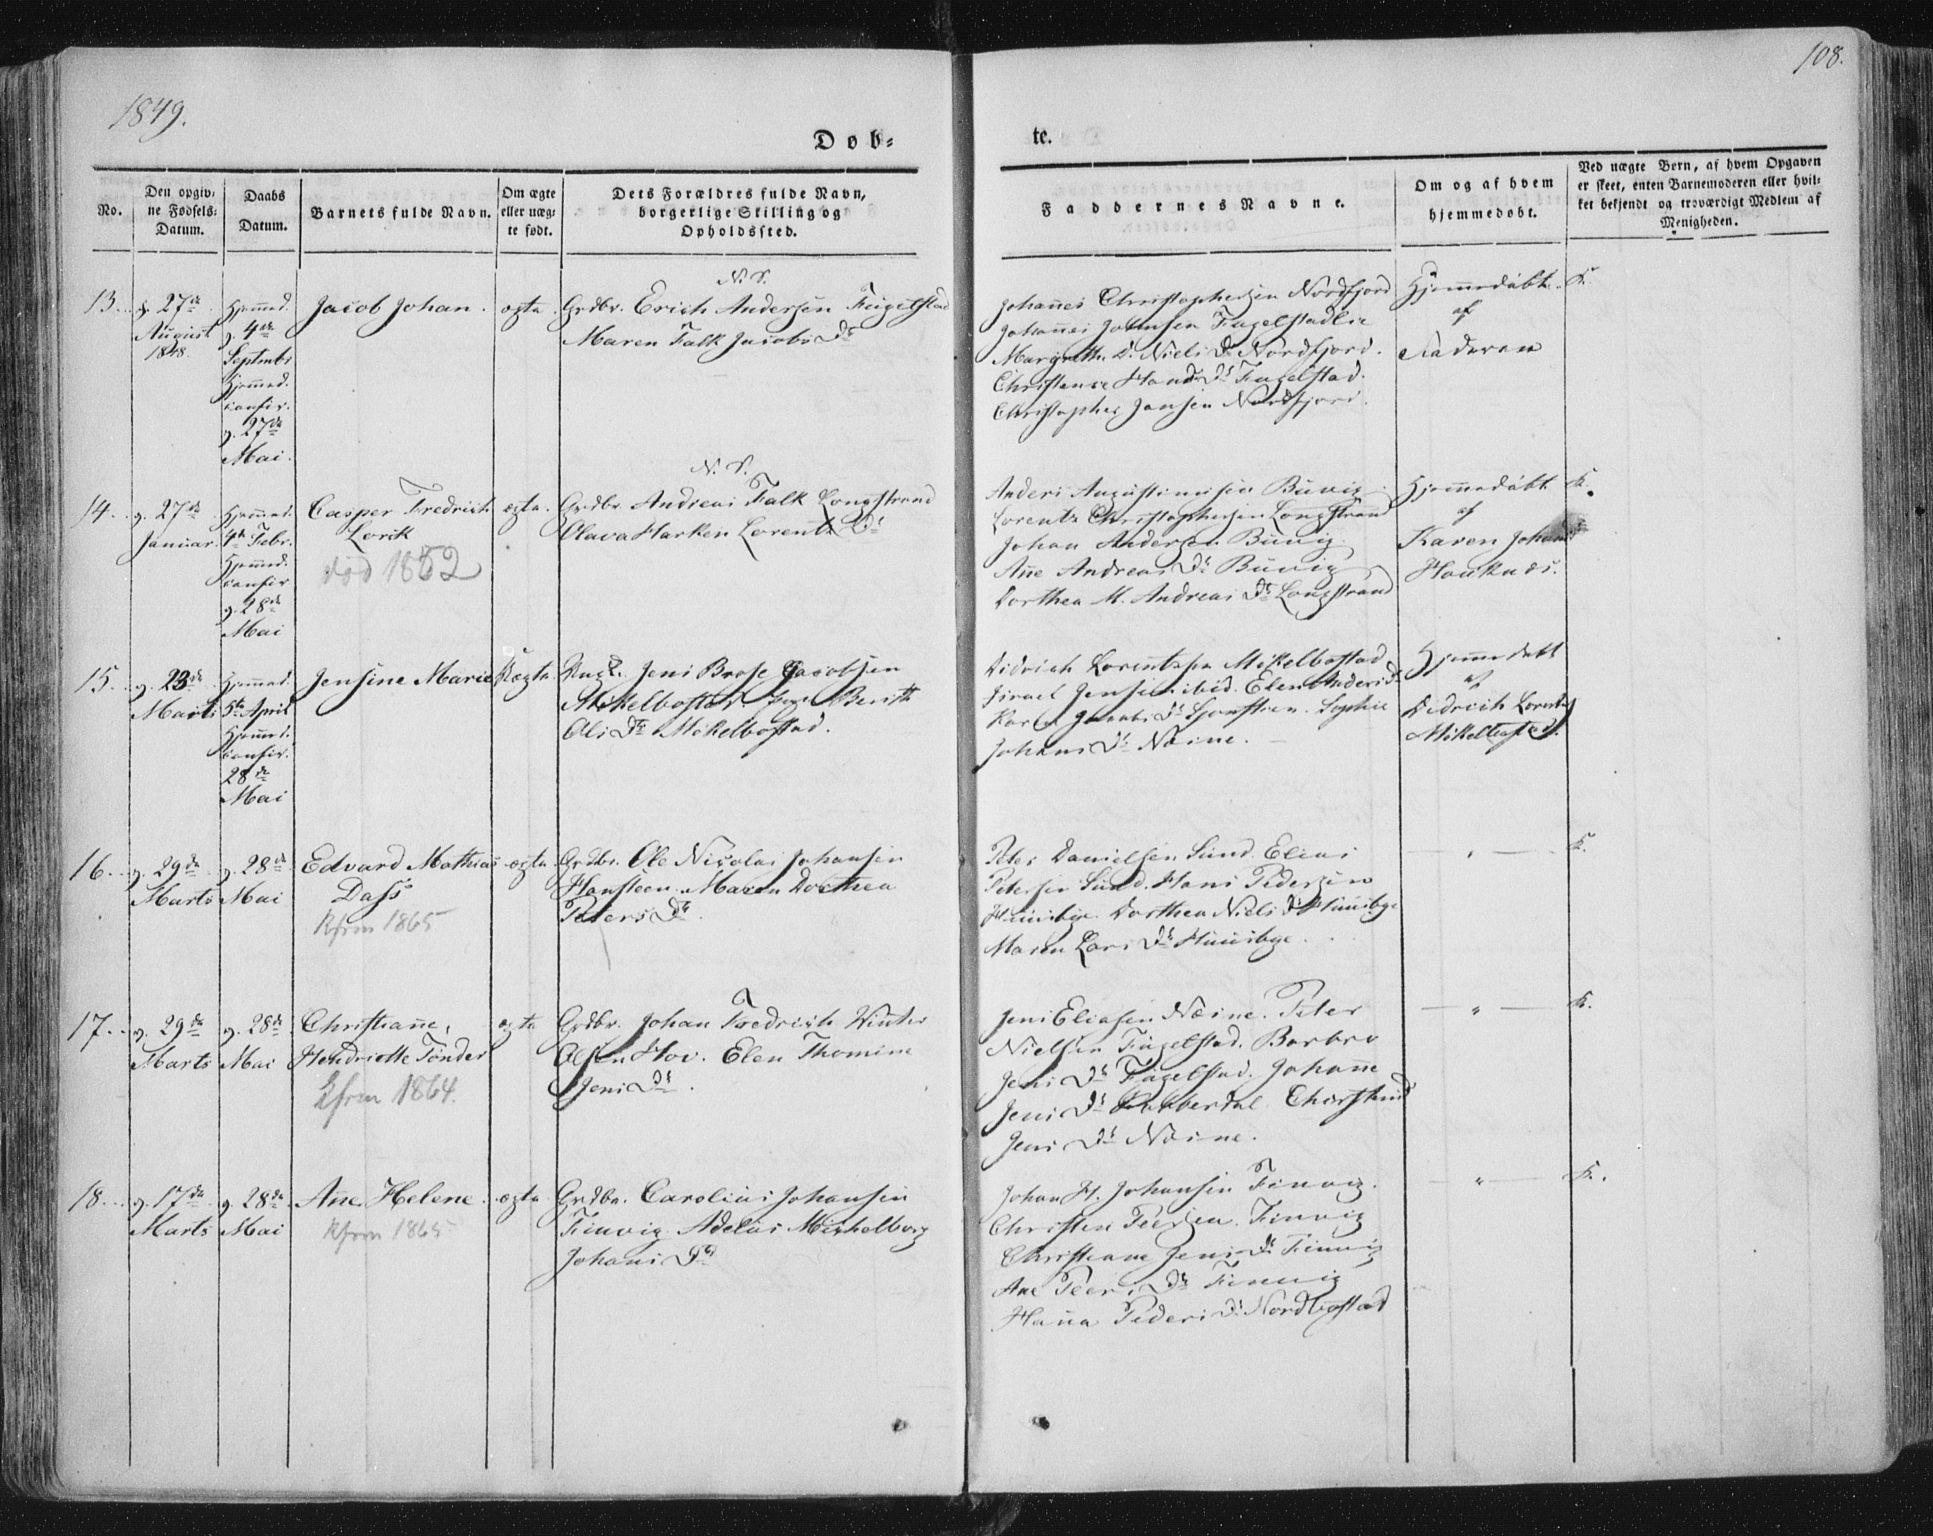 1849.
108.
Døb-
te.
No.
Den opgiv-
ne Fødsels-
Datum.
Daabs
Datum.
Barnets fulde Navn.
Om ægte
eller uæg-
te født.
Dets Forældres fulde Navn,
borgerlige Stilling og
Opholdssted.
Faddernes Navne.
Om og af hvem
hjemmedøbt.
Ved uægte Børn, af hvem Opgaven
er skeet, enten Barnemoderen eller hvil-
ket bekjendt og troværdigt Medlem af
Menigheden.
13.
27de
August
1848.
Hjemmed.
4de
Septmbr
Hjemmed.
confir.
27de
Mai.
Jacob Johan.
ægte
N. S.
Grdbr. Erich Andersen Fugelstad
Maren Falk Jacobs Dr
Johannes Christophersen Nordfjord
Johannes Johnsen Fagelstadlie
Margreth. D. Niels Dr Nordfjord.
Christense Hans Dr Fagelstad.
Christopher Jansen Nordfjord.
Hjemmedøbt.
af
Faderen
K.
14.
27de
Januar.
Hjemmed.
4de Febr.
Hjemmed.
confir
28de
Mai
Casper Fredrich
Lorik
død 1852
ægte.
N. S.
Grdbr Andreas Falk Longstrand
Olava Harken Lorents Dr
Anders Augustinusen Buvig
Lorents Christophersen Longstrand
Johan Andersen Buvig.
Ane Andreas Dr Buvig
Dorthea M. Andreas Dr Longstrand
Hjemmedøbt
af
Karen Johans
Hauknæs.
K.
15.
23de
Marts
Hjemmed.
5te April
Hjemmed.
confir.
28de
Mai
Jensine Marie
Jens Brose Jacobsen
Mikelbostad. Berith
Ols Dr Mikelbostad.
Didrich Lorentsen Mikelbostad
Israel Jensen ibid. Elen Anders Dr
Jacobs Dr Sophie
Johans Dr Næsne.
Hjemmedøbt
af
Didrich Lorents
Mikelbostad.
16.
29de
Marts
28de
Mai
Edvard Mathias
Dass
Kfrm 1865
ægte
Grdbr. Ole Nicolai Johansen
Hansteen. Maren Dorthea
Peters Dr.
Peter Danielsen Sund. Elias
Petersen Sund. Hans Pedersen
Huusbye. Dorthea Niels Dr Huusbye
Maren Lars Dr Huusbye.
— " —
K.
17.
29de
Marts
28de
Mai
Christiane,
Hendriette Tønder
Kfrm 1864.
ægte
Grdbr. Johan Fredrich Winter
Olsen Hov. Elen Thomine
Jens Dr.
Jens Eliasen Næsne. Peter
Nielsen Fugelstad. Barbro
Jens Dr Fagelstad. Johanne
Jens Dr
Jens Dr Næsne.
— " —
K.
18.
17de
Marts
28de
Mai
Ane Helene.
Kfrm 1865
ægte
Grdbr. Carolius Johansen
Finvig. Adelus Mikkelborg
Johans Dr
Johan H. Johansen Finvig.
Christen Peersen Finvig
Christiane Jens Dr Finvig
Ane Peers Dr Finvig
Hanna Peders Dr Nordbostad
— " —
K.